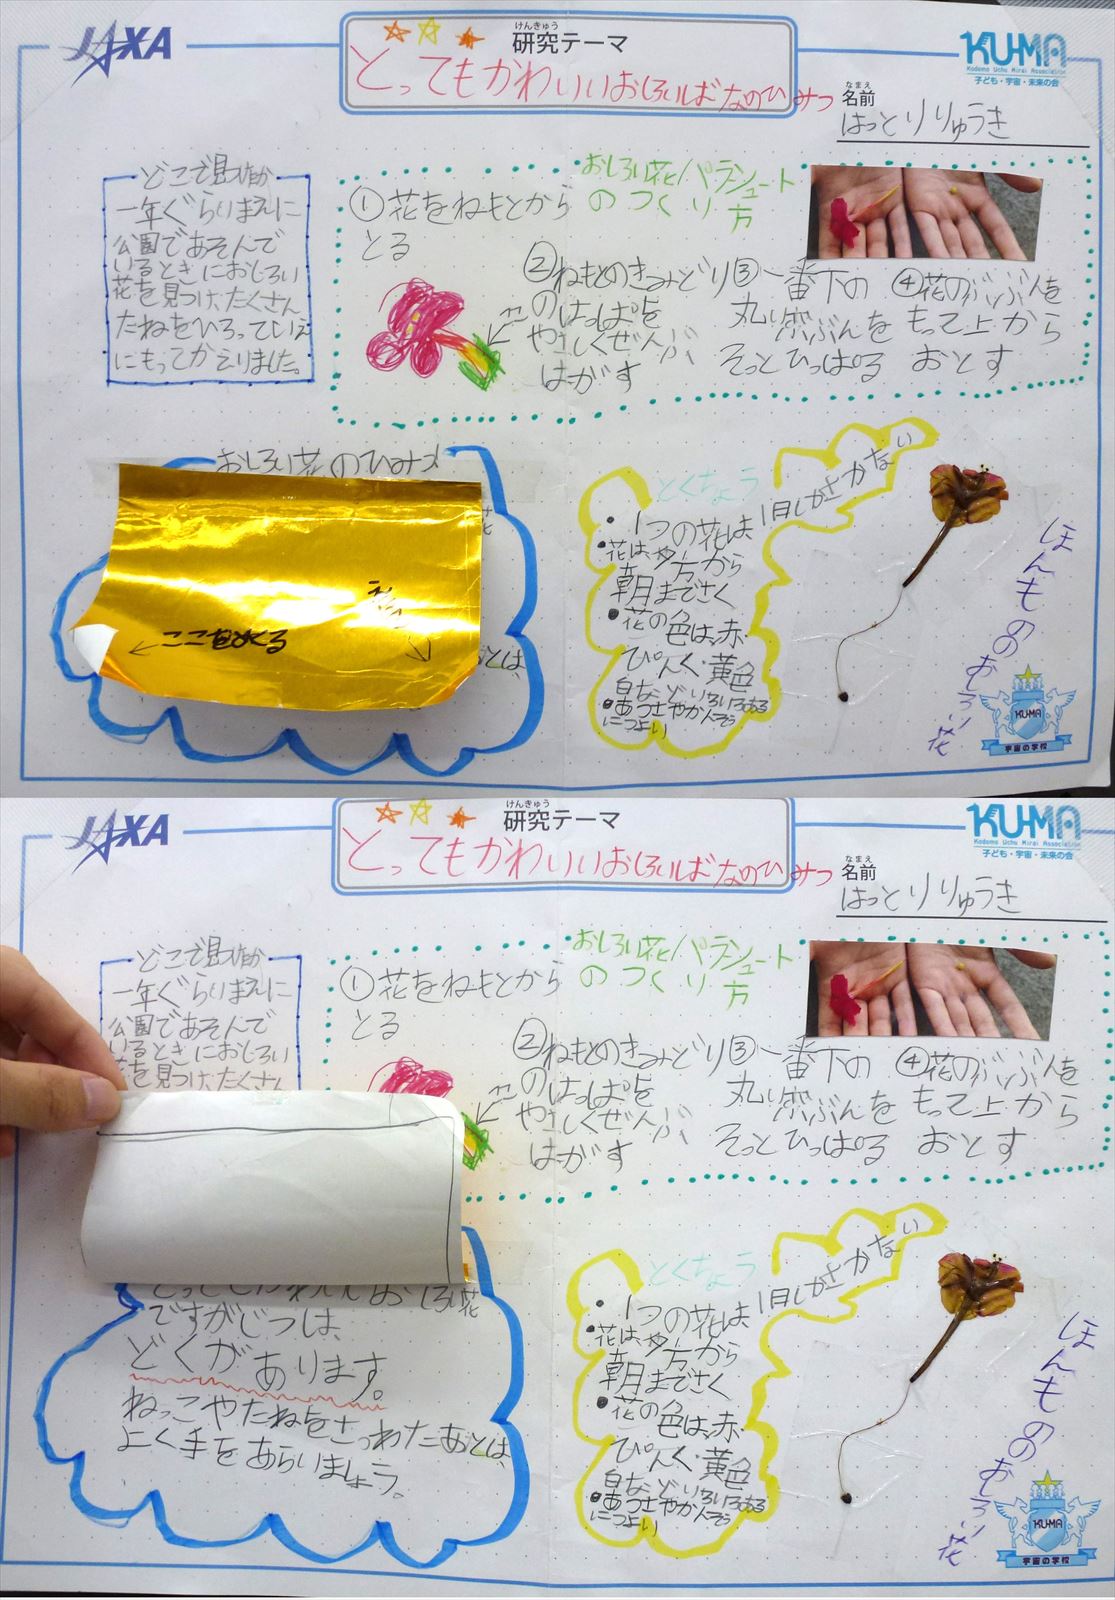 JAXA
けんきゅう
研究テーマ
とってもかわいいおしろいばなのひみつ
KU-MA
Kodomo Uchu Mirai Association
子ども・宇宙・未来の会
なまえ
名前
はっとりりゅうき
どこで見つけたか
一年ぐらいまえに
公園であそんで
いるときにおしろい
花を見つけ、たくさん
たねをひろっていえ
にもってかえりました。
おしろい花パラシュート
のつくり方
①花をねもとから
とる
②ねもとのきみどり
のはっぱを
やさしくぜんぶ
はがす
③一番下の
丸いぶぶんを
そっとひっぱる
④花のぶぶんを
もって上から
おとす
おしろい花のひみつ
ここをめくる
とくちょう
・1つの花は、1日しかさかない
・花は夕方から
朝までさく
・花の色は、赤・
ぴんく・黄色
白などいろいろある
・あつさやかんそう
につよい
ほんもののおしろい花
KU-MA
宇宙の学校
JAXA
けんきゅう
研究テーマ
とってもかわいいおしろいばなのひみつ
KU-MA
Kodomo Uchu Mirai Association
子ども・宇宙・未来の会
なまえ
名前
はっとりりゅうき
どこで見つけたか
一年ぐらいまえに
公園であそんで
いるときにおしろい
花を見つけ、たくさん
おしろい花パラシュート
のつくり方
①花をねもとから
とる
②ねもとのきみどり
のはっぱを
やさしくぜんぶ
はがす
③一番下の
丸いぶぶんを
そっとひっぱる
④花のぶぶんを
もって上から
おとす
とってもかわいいおしろい花
ですがじつは、
どくがあります。
ねっこやたねをさわったあとは、
よく手をあらいましょう。
とくちょう
・1つの花は、1日しかさかない
・花は夕方から
朝までさく
・花の色は、赤・
ぴんく・黄色
白などいろいろある
・あつさやかんそう
につよい
ほんもののおしろい花
KU-MA
宇宙の学校